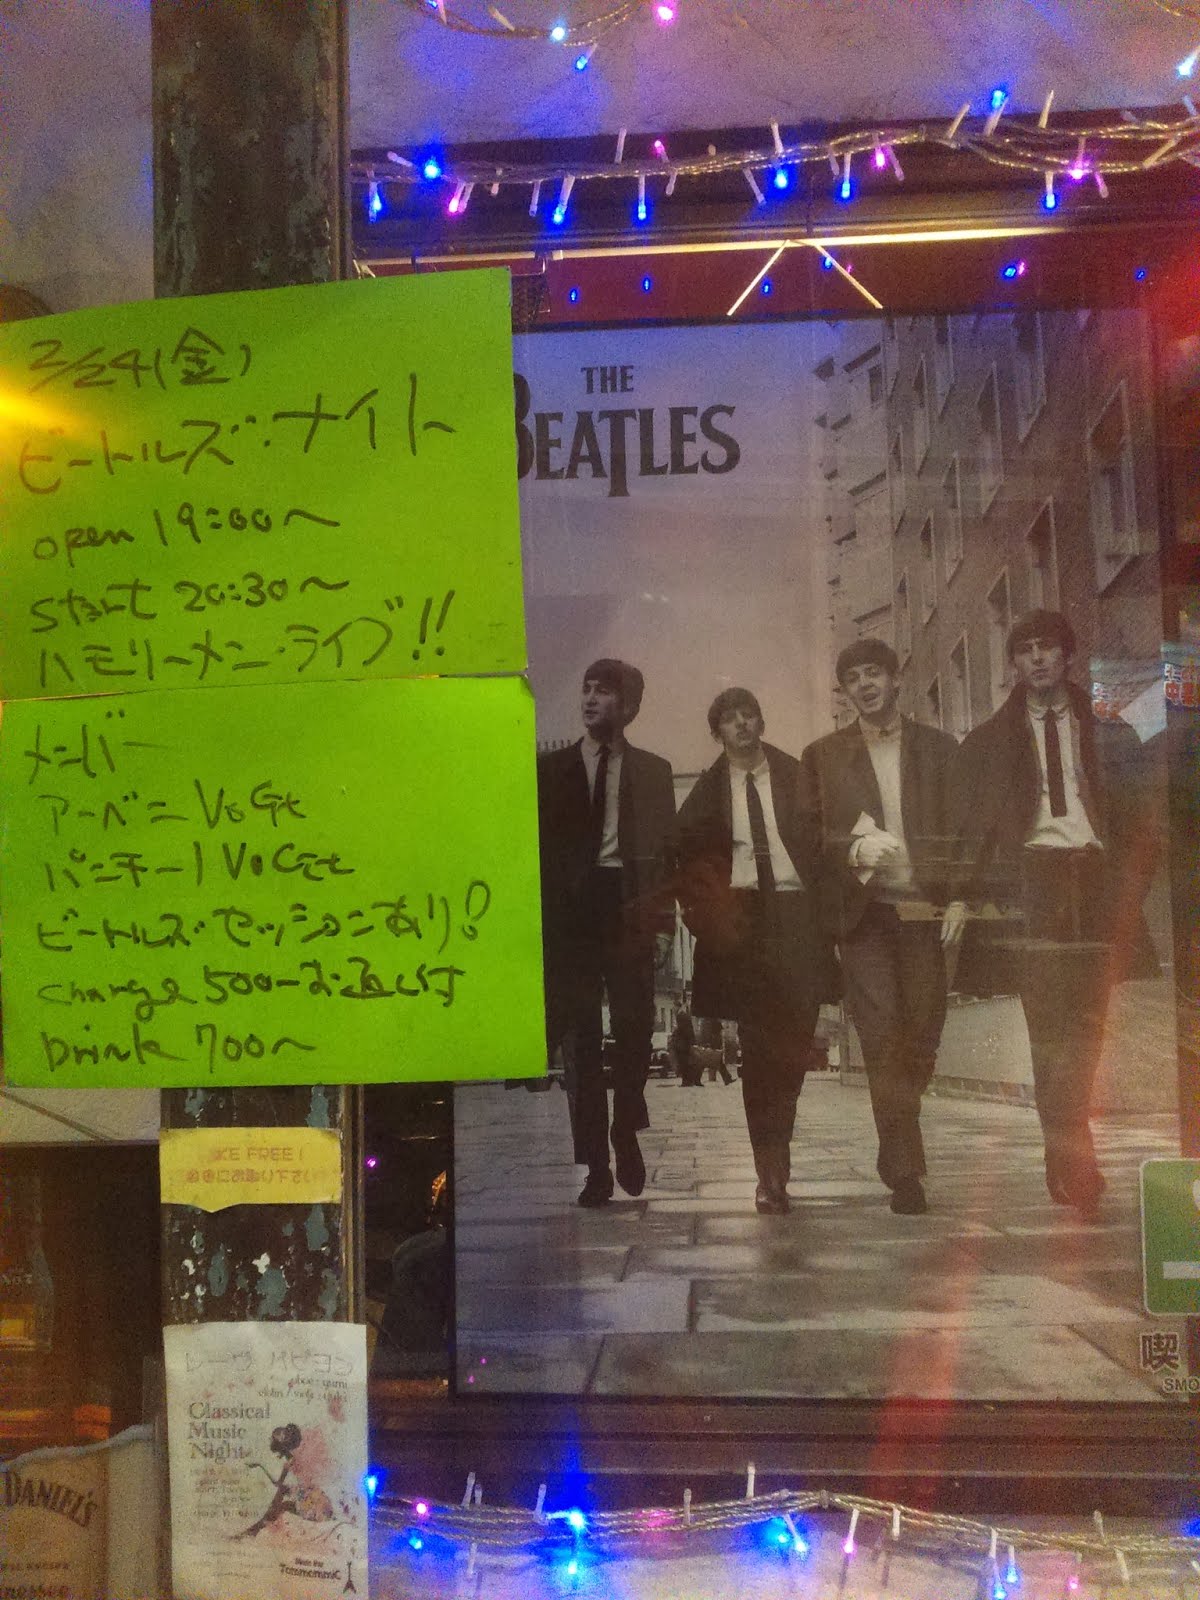 2/24(金)
ビートルズ・ナイト
open 19:00〜
start 20:30〜
ハモリーメン・ライブ!!
メンバー
アーベン Vo Gt
パンチー Vo Gt
ビートルズ・セッションあり!
charge 500-お通し付
Drink 700〜
THE
BEATLES
KE FREE!
Classical
Music
Night
DANIEL'S
喫
SMO